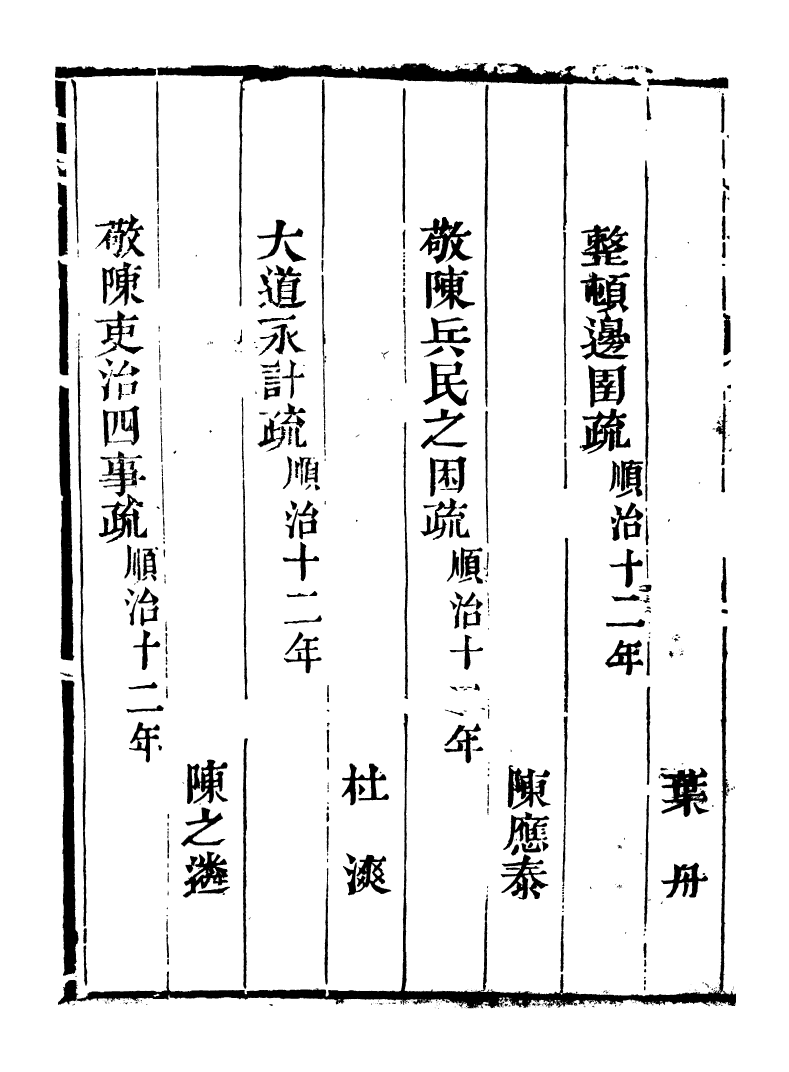 葉丹
整頓邊圉疏順治十二年
陳應泰
敬陳兵民之困疏順治十二年
杜漺
大道永計疏順治十二年
陳之遴
敬陳吏治四事疏順治十二年